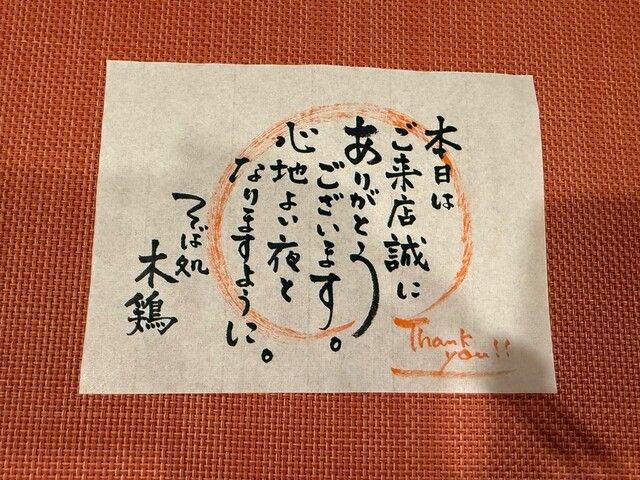 本日は
ご来店誠に
ありがとう
ございます。
心地よい夜と
なりますように。
そば処
木鶏
Thank
you!!